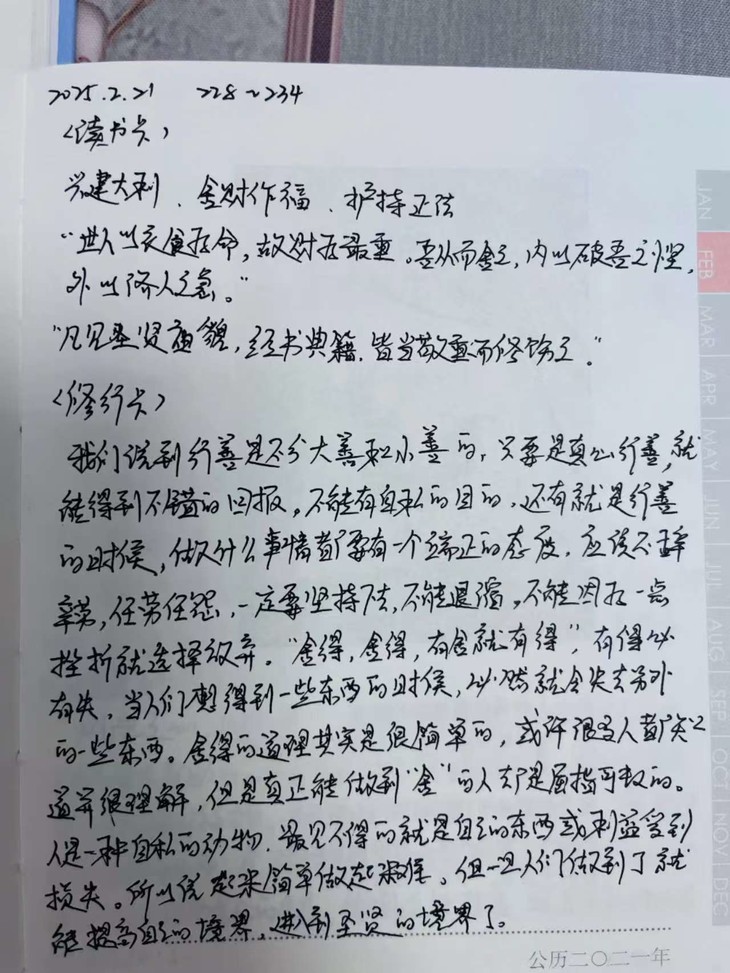 2025.2.21 228~234
<读书卡>
兴建大利、舍财作福、护持正法
“世人以衣食为命，故财为最重。吾从而舍之，内以破吾之悭，
外以济人之急。”
“凡见圣贤庙貌，经书典籍，皆当敬重而修饬之。”
<修行卡>
我们说到行善是不分大善和小善的，只要是真心行善，就
能得到不错的回报。不能有自私的目的，还有就是行善
的时候，做什么事情都要有一个端正的态度，应该不辞
辛劳，任劳任怨，一定要坚持下去，不能退缩，不能因为一点
挫折就选择放弃。“舍得，舍得，有舍就有得”，有得必
有失，当人们想得到一些东西的时候，必然就会失去另外
的一些东西。舍得的道理其实是很简单的，或许很多人都知
道并很理解，但是真正能做到“舍”的人却是屈指可数的。
人是一种自私的动物，最见不得的就是自己的东西或利益受到
损失。所以说起来简单做起来难，但一旦人们做到了就
能提高自己的境界，进到圣贤的境界了。
公历二〇二一年
JAN
FEB
MAR
APR
MAY
JUN
JUL
AUG
SEP
OCT
NOV
DEC